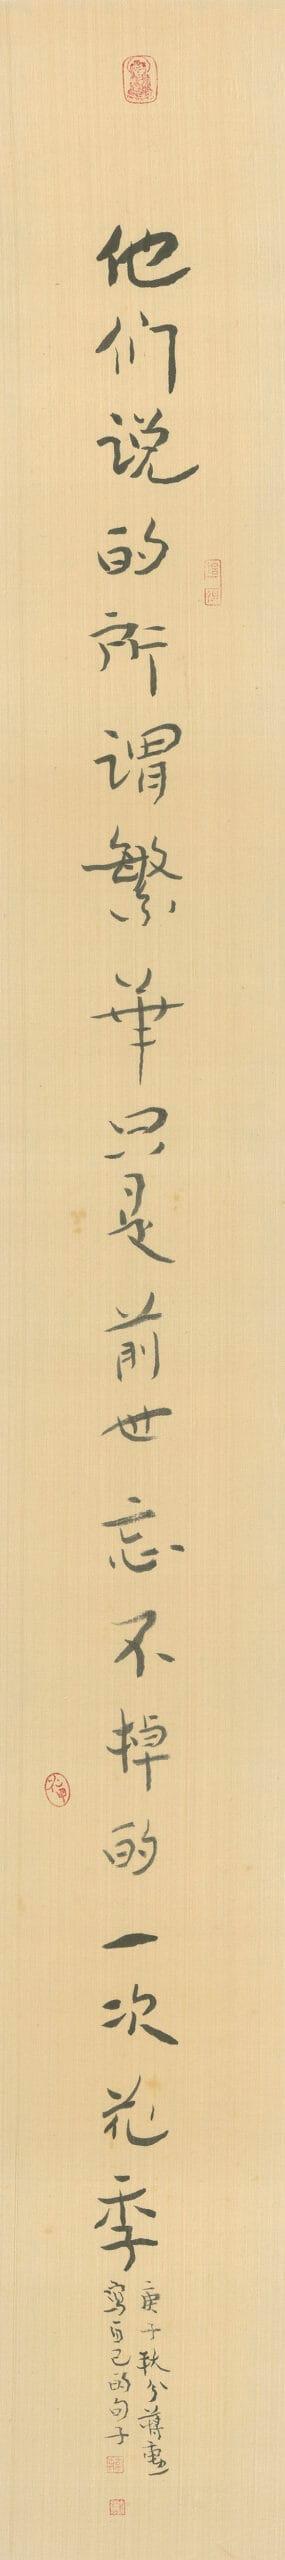 他们说的所谓繁華只是前世忘不掉的一次花季
庚子秋分蒋勳
寫自己的句子